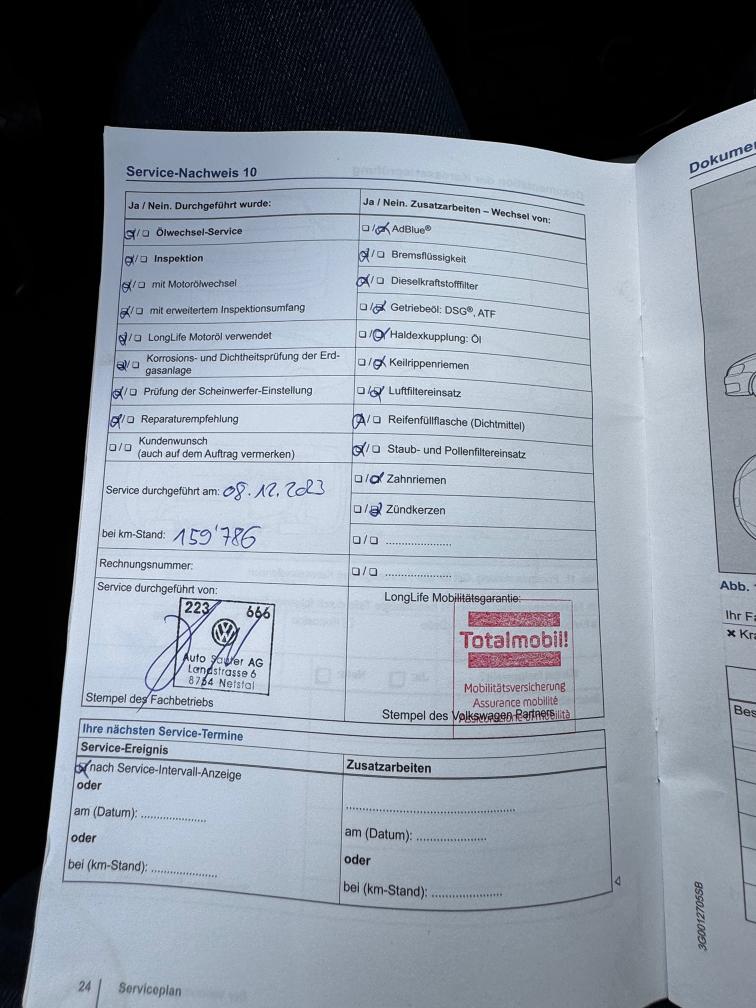 Service-Nachweis 10
Ja / Nein. Durchgeführt wurde:
☒/☐ Ölwechsel-Service
☒/☐ Inspektion
☒/☐ mit Motorölwechsel
☒/☐ mit erweitertem Inspektionsumfang
☒/☐ LongLife Motoröl verwendet
☒/☐ Korrosions- und Dichtheitsprüfung der Erd-
gasanlage
☒/☐ Prüfung der Scheinwerfer-Einstellung
☒/☐ Reparaturempfehlung
☐/☐ Kundenwunsch
(auch auf dem Auftrag vermerken)
Service durchgeführt am: 08.12.2023
bei km-Stand: 159'786
Rechnungsnummer:
Service durchgeführt von:
223 666
Auto Sauter AG
Landstrasse 6
8754 Netstal
Stempel des Fachbetriebs
Ja / Nein. Zusatzarbeiten – Wechsel von:
☐/☒ AdBlue®
☒/☐ Bremsflüssigkeit
☒/☐ Dieselkraftstofffilter
☐/☒ Getriebeöl: DSG®, ATF
☐/☒ Haldexkupplung: Öl
☐/☒ Keilrippenriemen
☐/☒ Luftfiltereinsatz
☒/☐ Reifenfüllflasche (Dichtmittel)
☒/☐ Staub- und Pollenfiltereinsatz
☐/☒ Zahnriemen
☐/☒ Zündkerzen
☐/☐ ....................
☐/☐ ....................
LongLife Mobilitätsgarantie:
Totalmobil!
Mobilitätsversicherung
Assurance mobilité
Stempel des Volkswagen Partners
Ihre nächsten Service-Termine
Service-Ereignis
☒ nach Service-Intervall-Anzeige
oder
am (Datum): ....................
oder
bei (km-Stand): ....................
Zusatzarbeiten
....................
am (Datum): ....................
oder
bei (km-Stand): ....................
24 Serviceplan
Dokumen
Abb.
Ihr Fa
× Kra
Bes
3G0012705SB